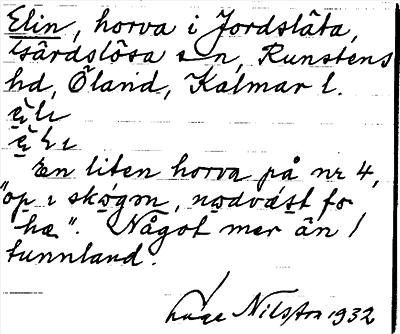 Elin, horva i Jordsläta,
Gärdslösa sn, Runstens
hd, Öland, Kalmar l.
En liten horva på nr 4,
"op ı skógən, nodvást fo
hæ". Något mer än 1
tunnland.
Nilsson 1932